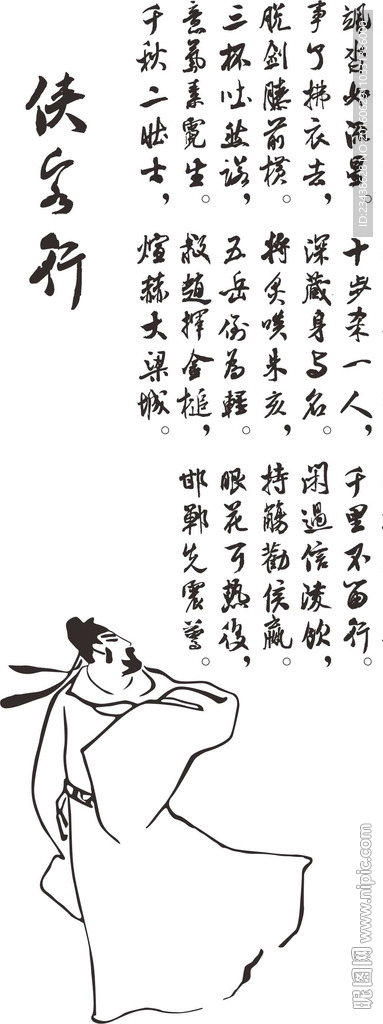 颯沓如流星。十步杀一人，千里不留行。
事了拂衣去，深藏身与名。閑過信陵飲，
脱剑膝前横。将炙啖朱亥，持觴勸侯嬴。
三杯吐然诺，五岳倒為輕。眼花耳热後，
意氣素霓生。救趙揮金槌，邯鄲先震驚。
千秋二壮士，煊赫大梁城。
侠客行
昵图网 www.nipic.com